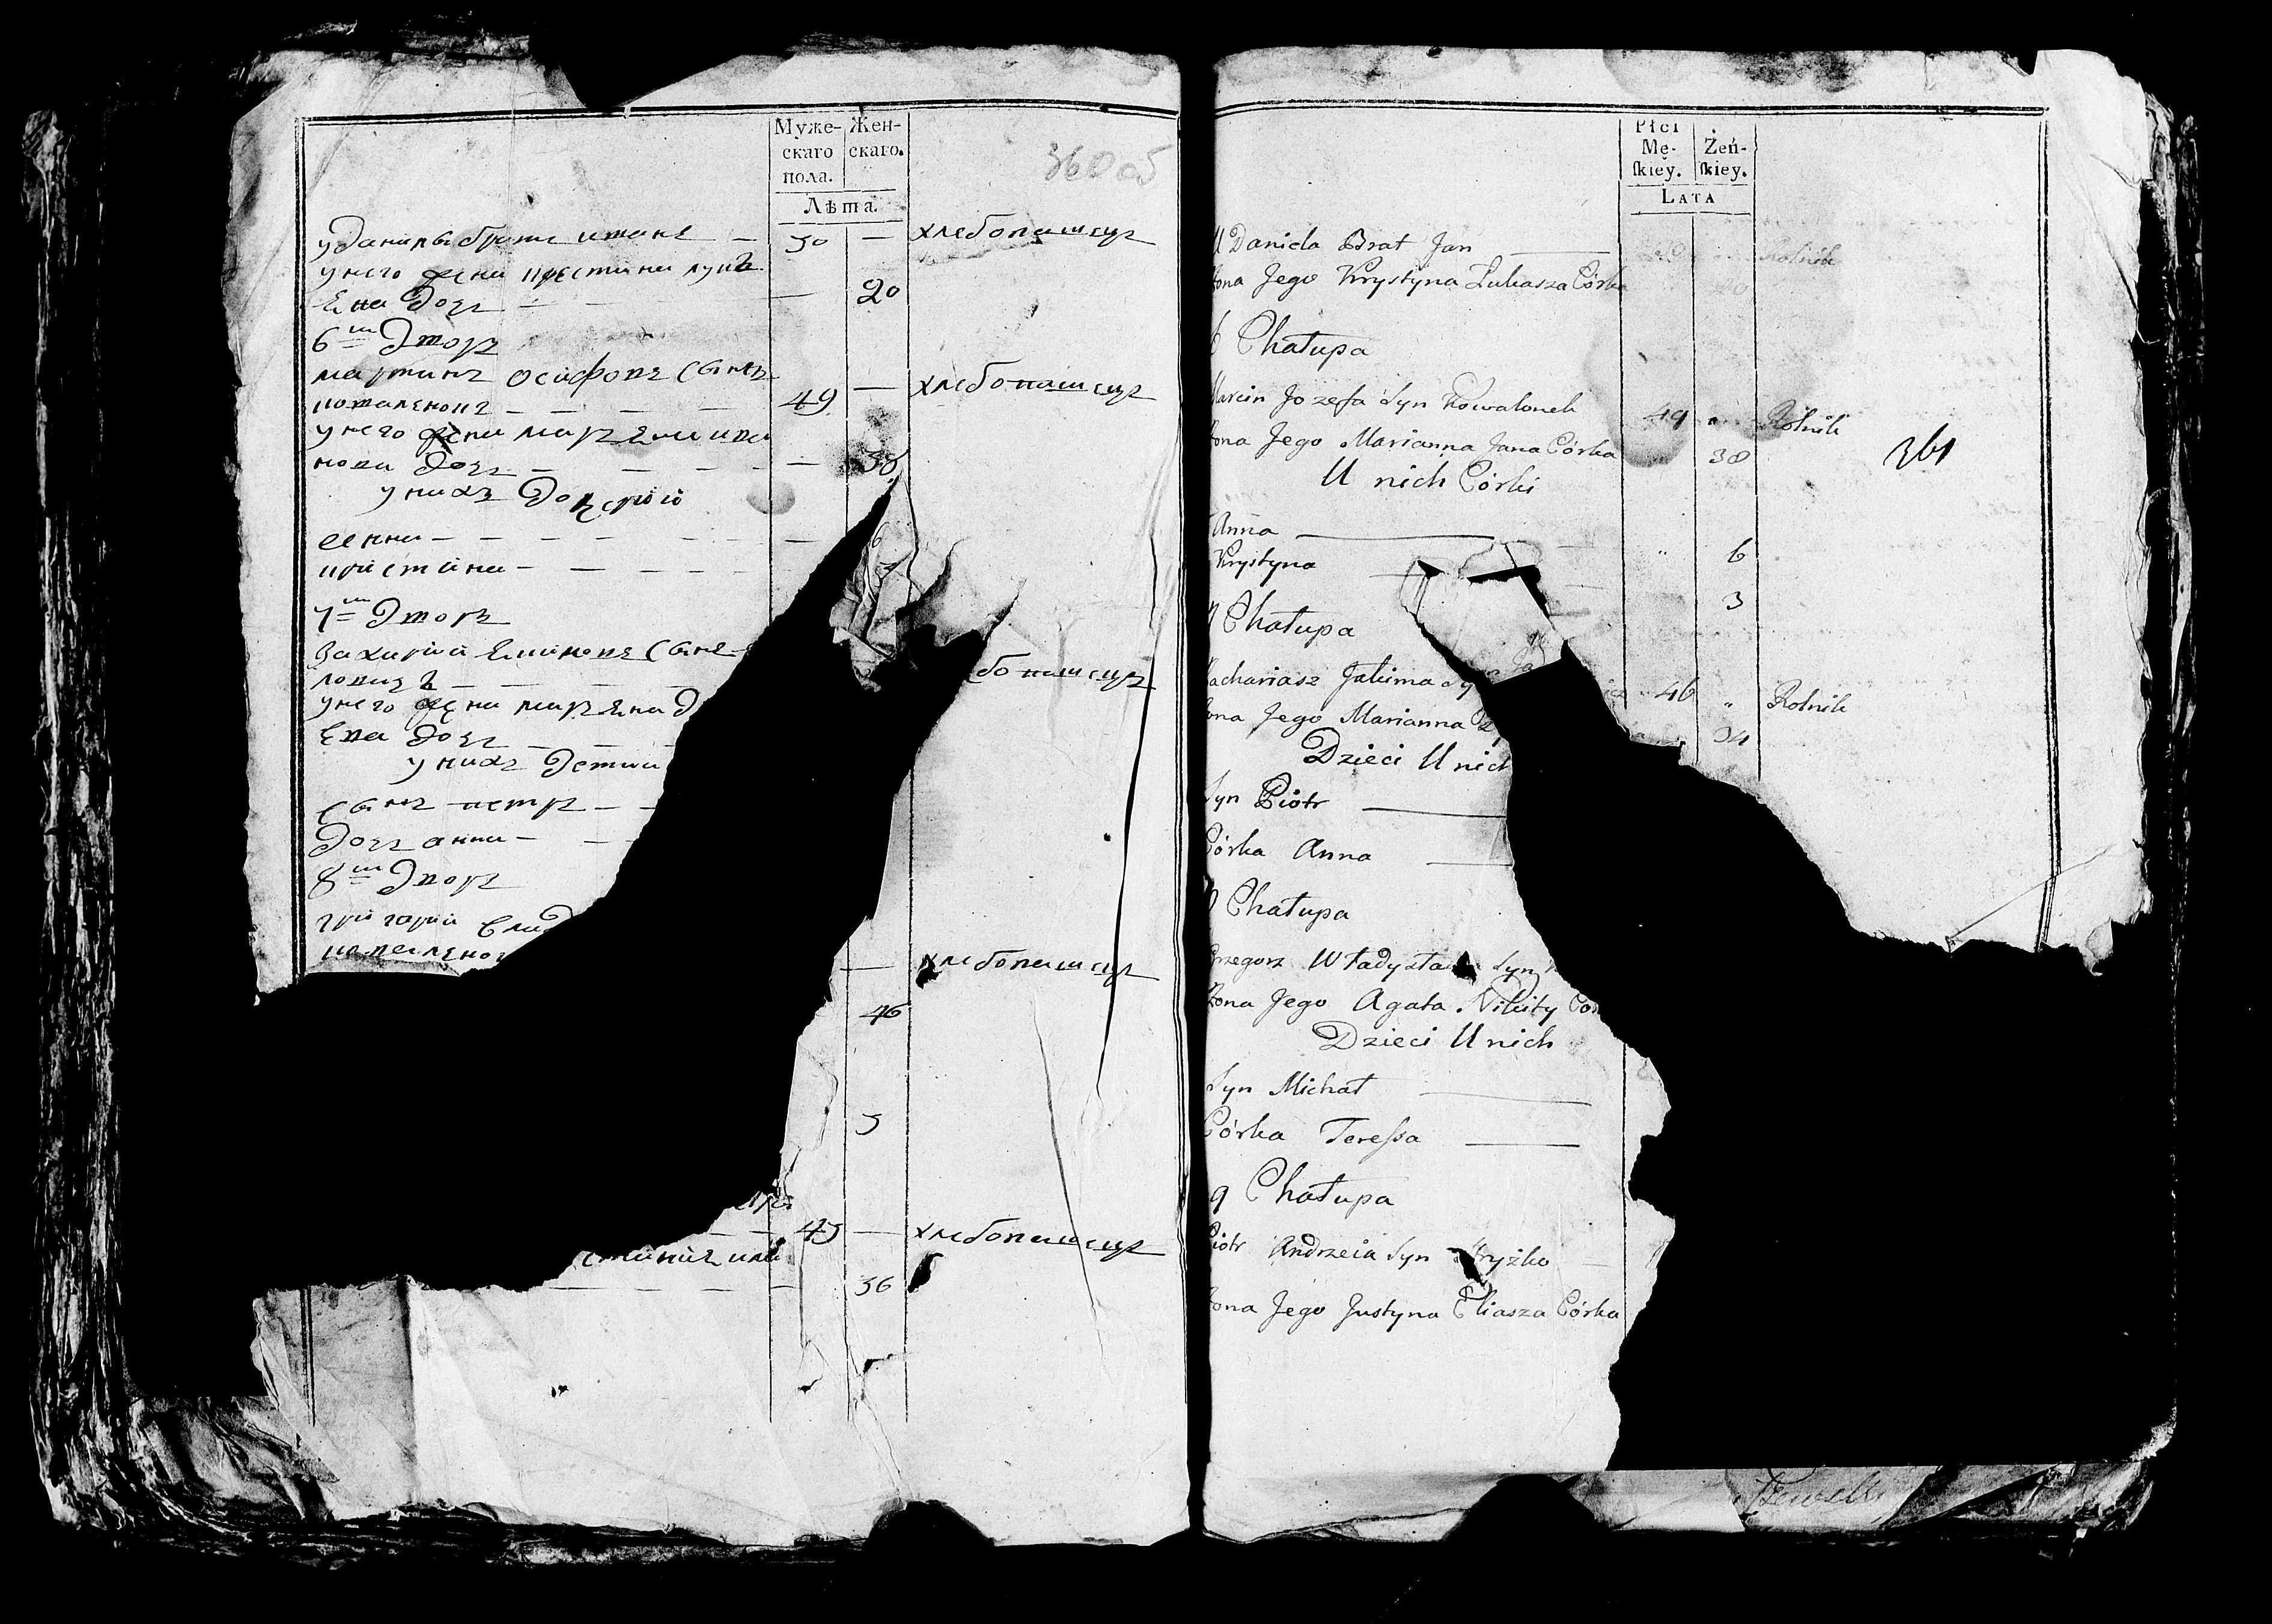 Муже-
скаго
пола.
Жен-
скаго.
Лѣта.
360 об
у Данилы братъ иванъ — 30 — хлебопашецъ
у него жена крестина лука
ена дочь — — 20
6й Дворъ
мартинъ осифовъ сынъ
коваленокъ — — — — 49 — хлебопашецъ
у него жена марьяна ива
нова дочь — — — — — 38
у нихъ дочерии
анна — — — — — — 6
кристина — — — — —
7й Дворъ
Захарии Якимовъ сынъ
ловичъ — — — — бопашецъ
у него жена марьяна
ева дочь — —
у нихъ Детии
сынъ петръ — —
дочь анна — —
8й Дворъ
григории влад
коваленок
— хлебопашецъ
46
5
43 — хлебопашецъ
36
Płci
Mę-
skiey.
Żeń-
skiey.
LATA
U Daniela Brat Jan — Rolnik
ona Jego Krystyna Łukasza Córka 20
6 Chałupa
Marcin Jozefa Syn Kowalonek 49 " Rolnik
ona Jego Marianna Jana Córka 38
361
U nich Córki
Anna — " 6
Krystyna — 3
7 Chałupa
Zachariasz Jakima Sy 46 " Rolnik
ona Jego Marianna 34
Dzieci U nich
Syn Piotr —
Córka Anna —
Chałupa
Grzegorz Władysława Syn
Żona Jego Agata Nikity Cór
Dzieci U nich
Syn Michał —
Córka Teressa —
9 Chałupa
Piotr Andrzeia Syn
ona Jego Justyna Eliasza Córka